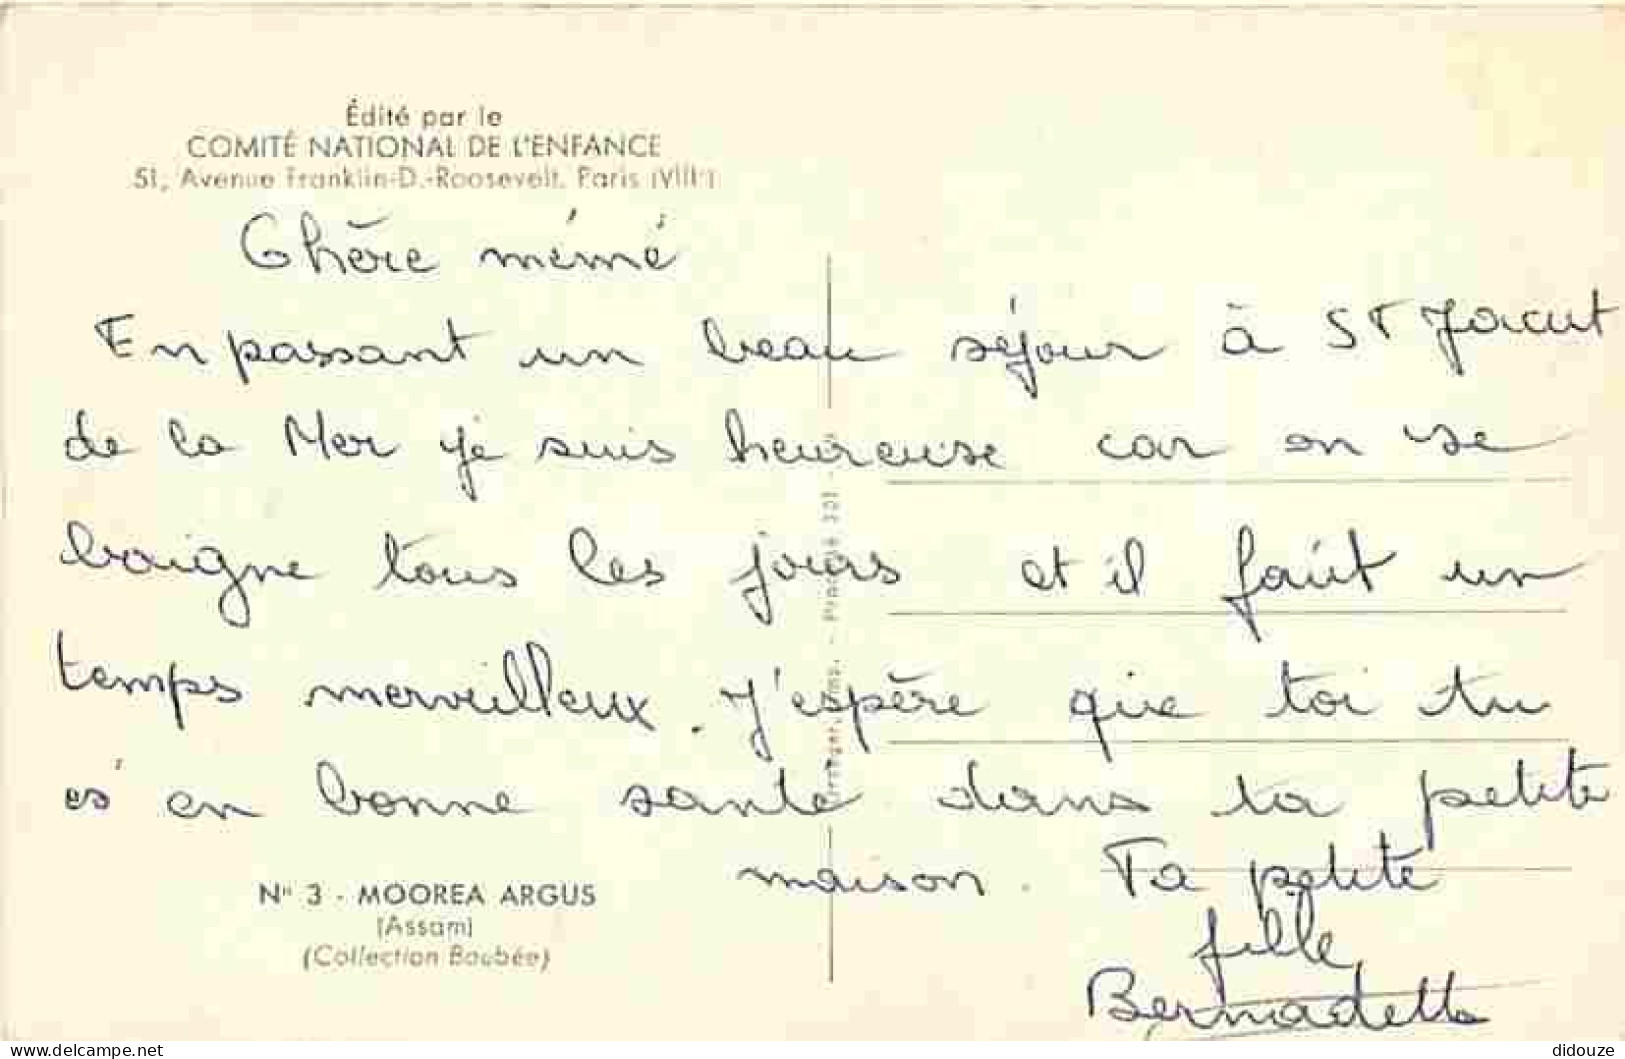 Édité par le
COMITÉ NATIONAL DE L'ENFANCE
51, Avenue Franklin-D.-Roosevelt, Paris (VIIIe)
Chère mémé
En passant un beau séjour à St Jacut
de la Mer je suis heureuse car on se
baigne tous les jours et il fait un
temps merveilleux. J'espère que toi tu
es en bonne santé dans ta petite
maison. Ta petite
fille
Bernadette
N° 3 - MOOREA ARGUS
(Assam)
(Collection Boubée)
delcampe.net
didouze